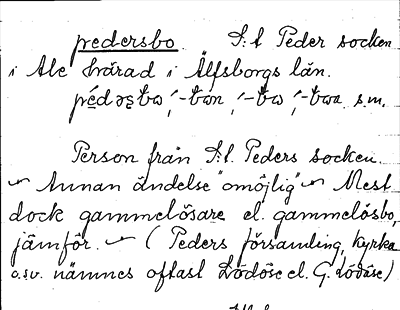 pedersbo. S:t Peder socken
i Ale härad i Älfsborgs län.
s.m.
Person från S:t. Peders socken.
Annan ändelse "omöjlig" Mest
dock gammelösare el. gammelösbo,
jämför. ( Peders församling, kyrka
o.sv. nämnes oftast Lödöse el. G. Lödöse)